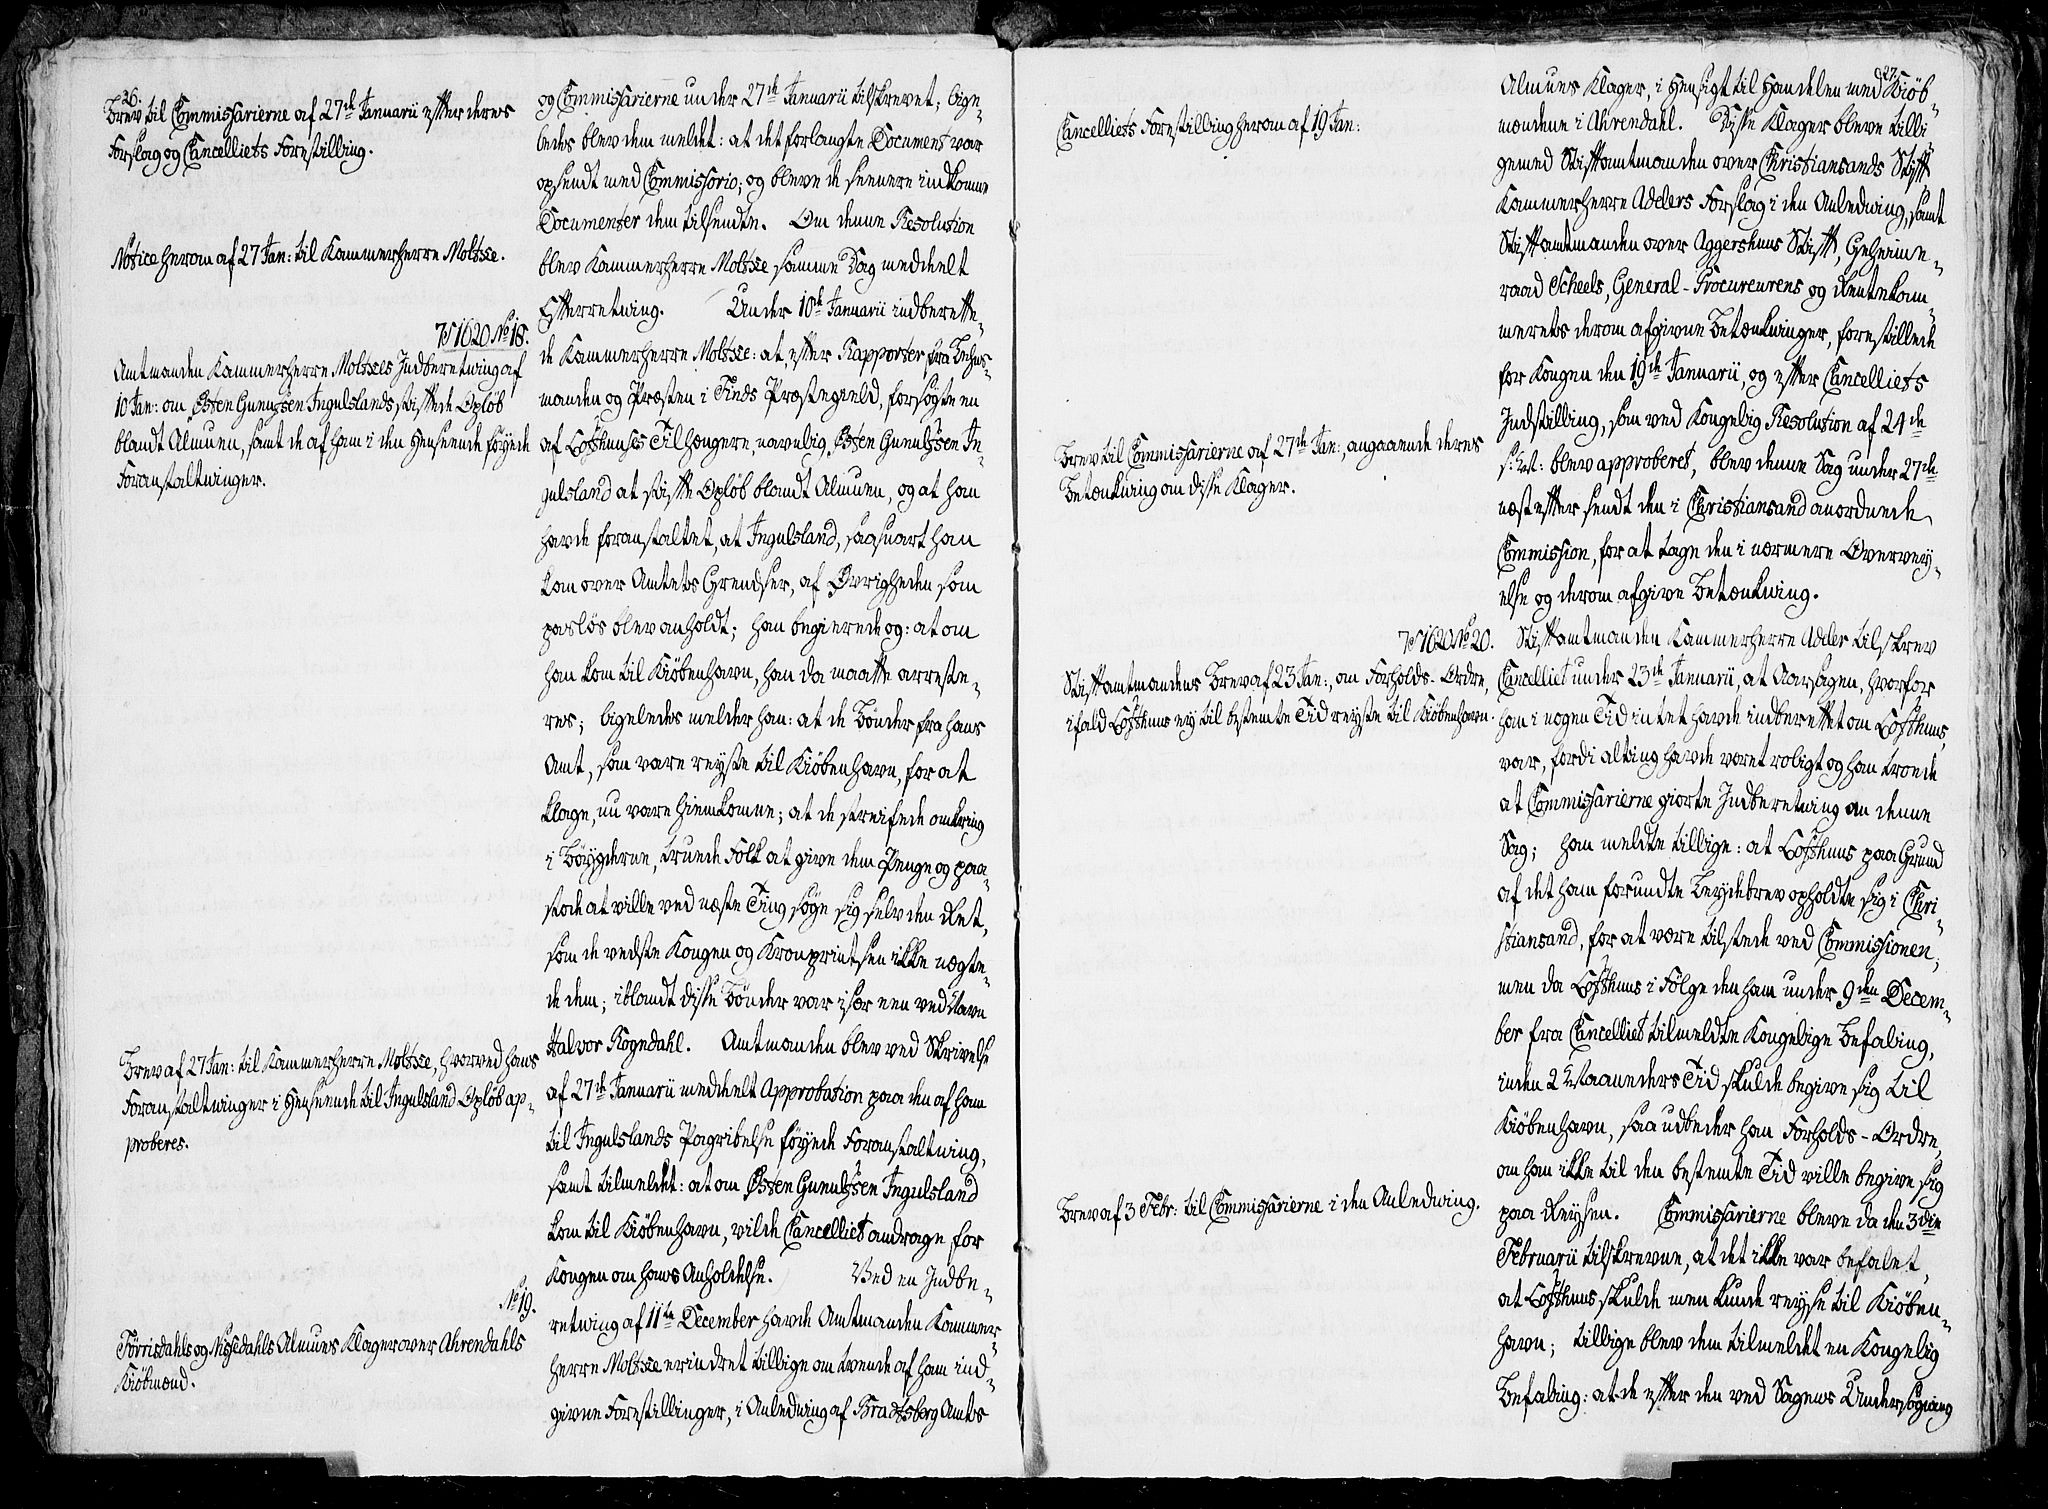 26.
Brev til Commissarierne af 27de Januarii efter deres
Forslag og Cancelliets Forestilling.
Notice herom af 27 Jan: til Kammerherre Moltke.
No 18.
Amtmanden Kammerherre Moltkes Indberetning af
10 Jan: om Østen Gunulfsen Ingulslands stiftede Opløb
blandt Almuen, samt de af ham i den Henseende føyede
Foranstaltninger.
Brev af 27 Jan: til Kammerherre Moltke, hvorved hans
Foranstaltninger i Henseende til Ingulsland Opløb ap-
proberes.
No 19.
Tørrisdahls og Nissedahls Almues Klager over Ahrendahls
Kiøbmænd.
og Commissarierne under 27de Januarii tilskrevet; lige-
ledes blev dem meldet: at det forlangte Document var
opsendt med Commissorio; og bleve de seenere indkomne
Documenter dem tilsendte. Om denne Resolution
blev Kammerherre Moltke samme Dag meddeelt
Efterretning. Under 10de Januarii indberette-
de Kammerherre Moltke: at efter Rapporter fra Lehns-
manden og Præsten i Tinds Præstegield, forsøgte en
af Lofthuuses Tilhængere, navnlig Østen Gunulfsen In-
gulsland at stifte Opløb blandt Almuen, og at han
havde foranstaltet, at Ingulsland, saasnart han
kom over Amtets Grendser, af Øvrigheden som
pasløs blev anholdt; han begierede og: at om
han kom til Kiøbenhavn, han da maatte arreste-
res; ligeledes melder han: at de Bønder fra hans
Amt, som vare reyste til Kiøbenhavn, for at
klage, nu vare hiemkomne; at de streifede omkring
i Bøygderne, truede Folk at give dem Penge og paa-
stode at ville ved næste Ting søge sig selv den Ret,
som de vedste Kongen og Kronprintsen ikke nægte-
de dem; iblandt disse Bønder var især een ved Navn
Halvor Kogedahl. Amtmanden blev ved Skrivelse
af 27de Januarii meddeelt Approbation paa den af ham
til Ingulslands Pagribelse føyede Foranstaltning,
samt tilmeldet: at om Østen Gunulfsen Ingulsland
kom til Kiøbenhavn, vilde Cancelliet andrage for
Kongen om hans Anholdelse. Ved en Indbe-
retning af 11te December havde Amtmanden Kammer-
herre Moltke erindret tillige om tvende af ham ind-
givne Forestillinger, i Anledning af Bradtsberg Amts
27.
Cancelliets Forestilling herom af 19 Jan:
Brev til Commissarierne af 27de Jan:, angaaende deres
Betænkning om disse Klager.
No 20.
Stiftamtmandens Brev af 23 Jan:, om Forholds-Ordre,
ifald Lofthuus ey til bestemte Tid reyste til Kiøbenhavn.
Brev af 3 Febr: til Commissarierne i den Anledning.
Almues Klager, i Hensigt til Handelen med Kiøb-
mændene i Ahrendahl. Disse Klager bleve tilli-
gemed Stiftamtmanden over Christiansands Stift
Kammerherre Adelers Forslag i den Anledning, samt
Stiftamtmanden over Aggershuus Stift, Geheime-
raad Scheels, General-Procureurens og Rentekam-
merets derom afgivne Betænkninger, forestillede
for Kongen den 19de Januarii, og efter Cancelliets
Indstilling, som ved Kongelig Resolution af 24de
s: M: blev approberet, blev denne Sag under 27de
næst efter sendt den i Christiansand anordnede
Commission, for at tage den i nærmere Overvey-
else og derom afgive Betænkning.
Stiftamtmanden Kammerherre Adeler tilskrev
Cancelliet under 23de Januarii, at Aarsagen, hvorfor
han i nogen Tid intet havde indberettet om Lofthuus,
var, fordi alting havde været roligt og han troede
at Commissarierne giorte Indberetning om denne
Sag; han meldte tillige: at Lofthuus paa Grund
af det ham forundte Leydebrev opholdte sig i Chri-
stiansand, for at være tilstede ved Commissionen;
men da Lofthuus i Følge den ham under 9den Decem-
ber fra Cancelliet tilmeldte Kongelige Befaling,
inden 2 Maaneders Tid skulde begive sig til
Kiøbenhavn, saa udbeder han Forholds-Ordre,
om han ikke til den bestemte Tid ville begive sig
paa Reysen. Commissarierne bleve da den 3die
Februarii tilskrevne, at det ikke var befalet,
at Lofthuus skulde men kunde reyse til Kiøben-
havn; tillige blev dem tilmeldet en Kongelig
Befaling: at de efter den ved Sagens Undersøgning